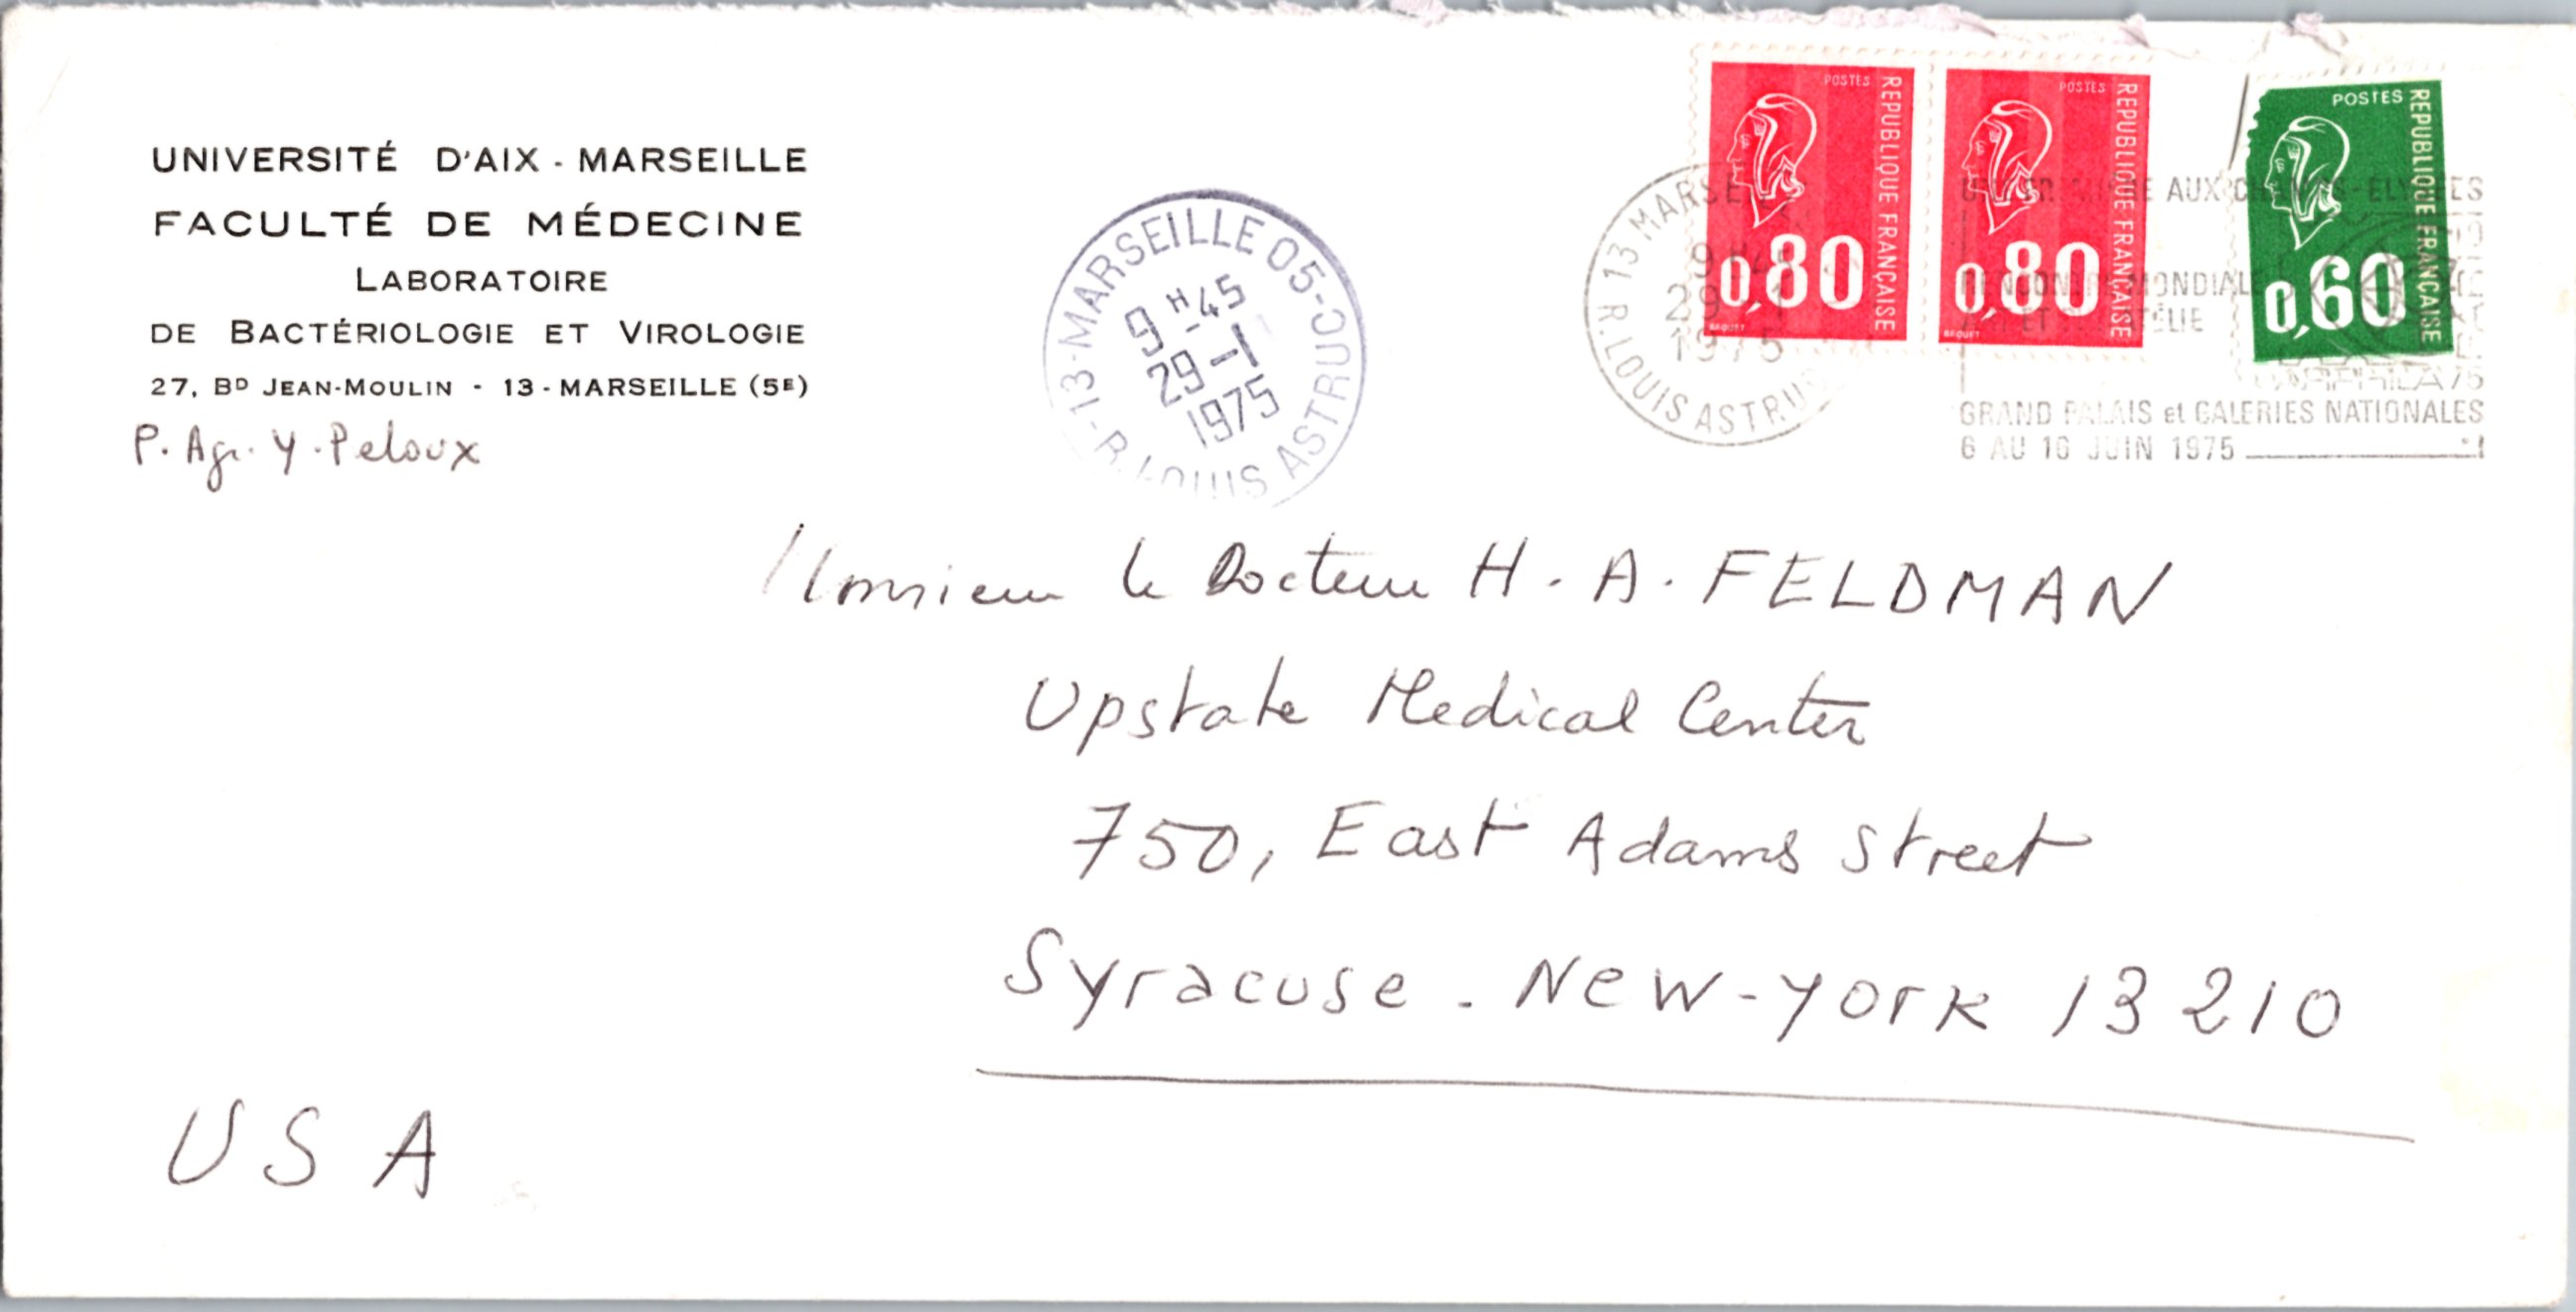 UNIVERSITÉ D'AIX - MARSEILLE
FACULTÉ DE MÉDECINE
LABORATOIRE
DE BACTÉRIOLOGIE ET VIROLOGIE
27, BD JEAN-MOULIN - 13 - MARSEILLE (5E)
P. Agr. Y. Peloux
13-MARSEILLE 05
9H-45
29-1
1975
R. LOUIS ASTRUC
13 MARSEILLE
29
1975
R. LOUIS ASTRUC
POSTES
REPUBLIQUE FRANÇAISE
0,80
BEQUET
POSTES
REPUBLIQUE FRANÇAISE
0,80
BEQUET
POSTES
REPUBLIQUE FRANÇAISE
0,60
AUX CHAMPS-ELYSEES
RENCONTRE MONDIALE
ARPHILA 75
GRAND PALAIS et GALERIES NATIONALES
6 AU 16 JUIN 1975
Monsieur le Docteur H. A. FELDMAN
Upstate Medical Center
750, East Adams Street
Syracuse - New-York 13210
USA